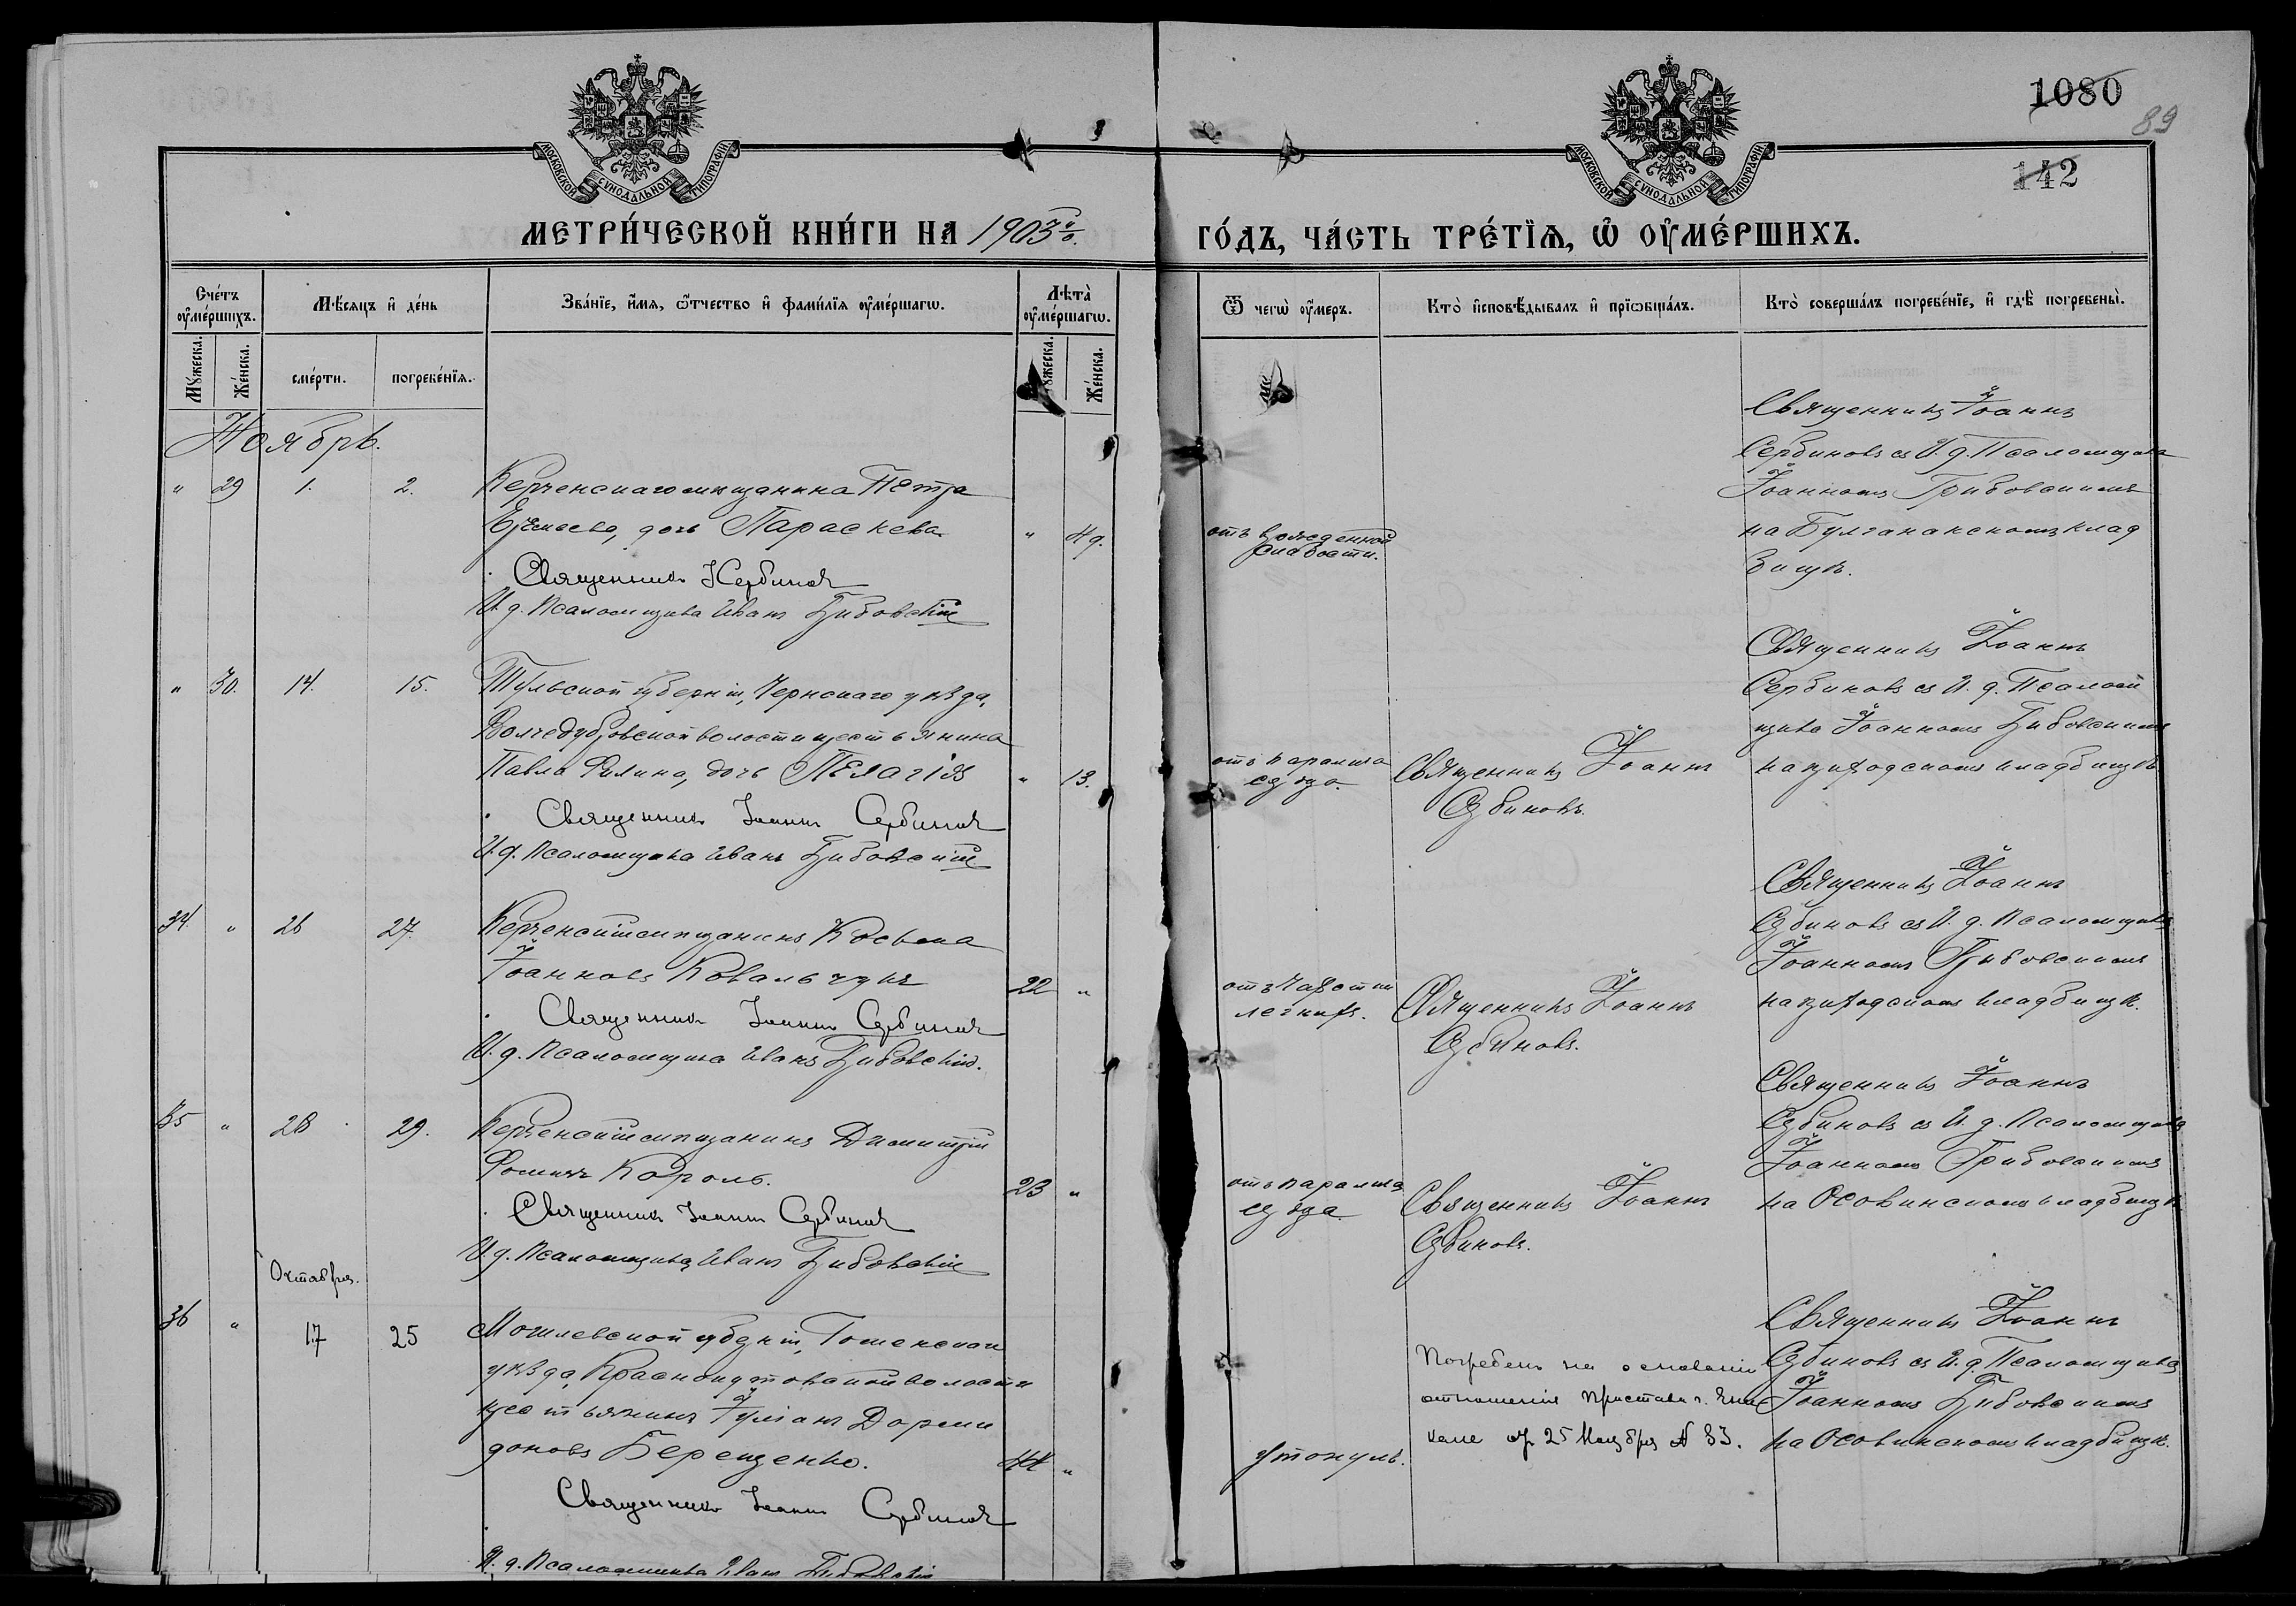 1080
89
142
МОСКОВСКОЙ СѴНОДАЛЬНОЙ ТИПОГРАФІИ
МОСКОВСКОЙ СѴНОДАЛЬНОЙ ТИПОГРАФІИ
МЕТРИ́ЧЕСКОЙ КНИ́ГИ НА 1903й
ГО́ДЪ, ЧА́СТЬ ТРЕ́ТІѦ, Ѡ ОУ҆МЕ́РШИХЪ.
Сче́тъ оу҆ме́ршихъ.
Мѣ́сяцъ и҆ де́нь
Зва́нїе, и҆́мя, ѻ҆́тчество и҆ фами́лїя оу҆ме́ршагѡ.
Лѣ́та оу҆ме́ршагѡ.
Ѿ чегѡ̀ оу҆́меръ.
Кто̀ и҆сповѣ́дывалъ и҆ прїѡбща́лъ.
Кто̀ соверша́лъ погребе́нїе, и҆ гдѣ̀ погребены̀.
Мꙋ́жеска.
Же́нска.
сме́рти.
погребе́нїя.
Мꙋ́жеска.
Же́нска.
Ноябрь.
" 29 1. 2.
Керченскаго мѣщанина Петра
Еремеева, дочь Параскева
" 4 д.
Священник Сербинов
И. д. Псаломщика Иван Грибовскій
отъ врожденной
слабости.
Священникъ Іоаннъ
Сербиновъ съ И. д. Псаломщика
Іоанномъ Грибовскимъ
на Булганакскомъ клад
бищѣ.
" 30. 14. 15.
Тульской губерніи, Чернскаго уѣзда,
Волчедубровской волости крестьянина
Павла Филина, дочь Пелагія
" 13.
Священник Іоанн Сербинов
И. д. Псаломщика Иванъ Грибовскій
отъ паралича
сердца.
Священникъ Іоаннъ
Сербиновъ.
Священникъ Іоаннъ
Сербиновъ съ И. д. Псалом
щика Іоанномъ Грибовскимъ
на приходскомъ кладбищѣ
34. " 26 27.
Керченскій мѣщанинъ Косьма
Іоанновъ Ковальчукъ
22 "
Священник Іоанн Сербинов
И. д. Псаломщика Иванъ Грибовскій.
отъ чахотки
легкихъ.
Священникъ Іоаннъ
Сербиновъ.
Священникъ Іоаннъ
Сербиновъ съ И. д. Псаломщика
Іоанномъ Грибовскимъ
на приходскомъ кладбищѣ.
35 " 28 29.
Керченскій мѣщанинъ Димитрій
Фоминъ Король.
23 "
Священник Іоанн Сербинов
И. д. Псаломщика Иванъ Грибовскій
отъ паралича
сердца.
Священникъ Іоаннъ
Сербиновъ.
Священникъ Іоаннъ
Сербиновъ съ И. д. Псаломщика
Іоанномъ Грибовскимъ
на Осовинскомъ кладбищѣ
Октября.
36 " 17 25
Могилевской губерніи, Гомельскаго
уѣзда, волости
крестьянинъ Гуріанъ Дорми
доновъ Берещенко.
44 "
Священник Іоанн Сербинов
И. д. Псаломщика Иван Грибовскій
утонулъ.
Погребенъ на основаніи
отношенія Пристава г. Ени
кале от 25 Ноября № 83.
Священникъ Іоаннъ
Сербиновъ съ И. д. Псаломщика
Іоанномъ Грибовскимъ
на Осовинскомъ кладбищѣ.